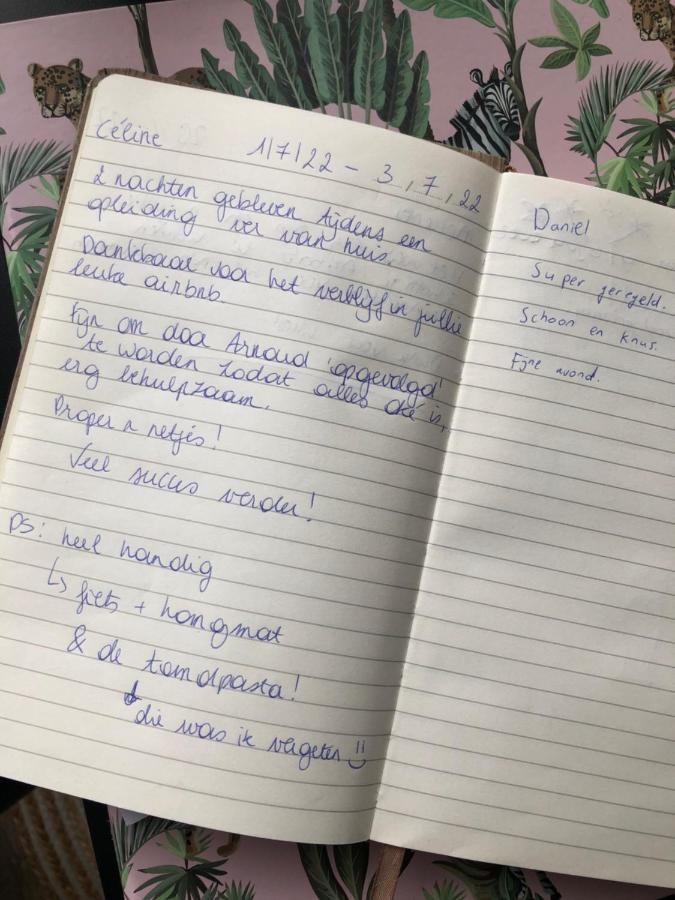 Céline 1/7/22 - 3,7,22
2 nachten gebleven tijdens een
opleiding ver van huis.
Dankbaar voor het verblijf in jullie
leuke airbnb.
Fijn om door Arnoud 'opgevolgd'
te worden zodat alles oké is,
erg behulpzaam.
Proper n netjes!
Veel succes verder!
PS: heel handig
↳ fiets + hangmat
& de tandpasta!
↓ die was ik vergeten :)
Daniel
Super geregeld.
Schoon en knus.
Fijne avond.